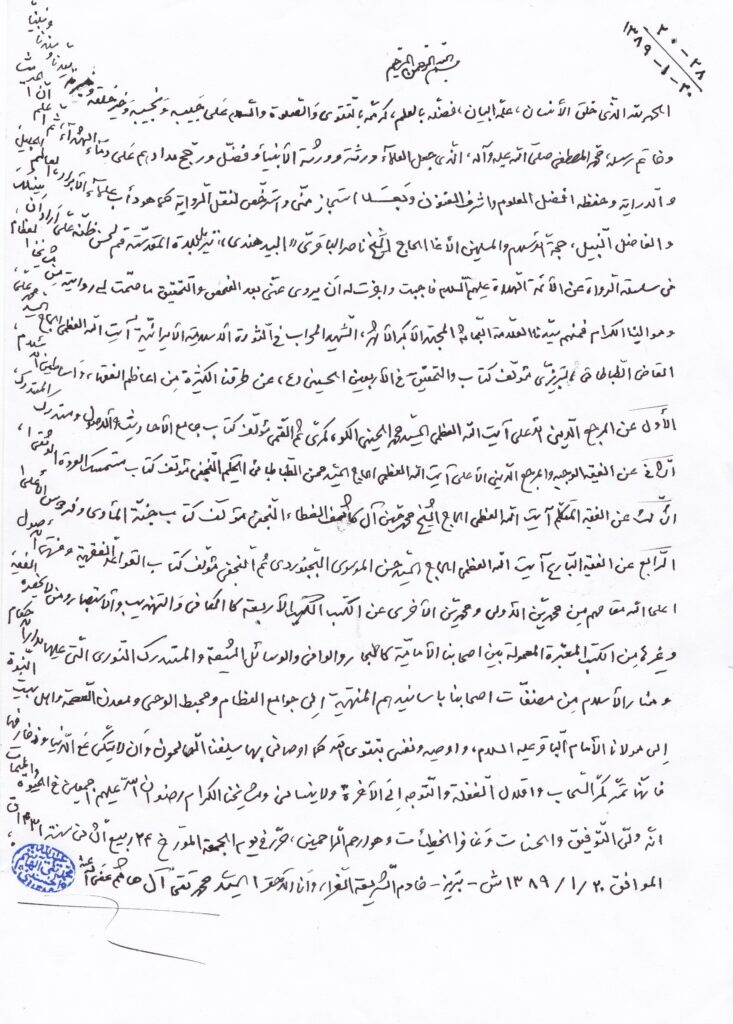 ۲۸-۲۰-
۱۳۸۹-۱-۲۰
بسم الله الرحمن الرحيم
الحمد لله الذي خلق الأنسان، علّمه البيان، فضّله بالعلم، كرمّه بالتقوى والصلوة والسلام على حبيبه ونجيبه وخير خلقه
وخاتم رسله محمد المصطفى صلى الله عليه وآله، الذي جعل العلماء ورثة الأنبياء وفضّل ورجّح مدادهم على دماء الشهداء، ثم أن علم الحديث
والدراية وحفظه افضل العلوم واشرف الفنون وبعد استجاز منّي واسترخص لنقل الرواية كما هو دأب علماء الأبرار، العالم الجليل
والفاضل النبيل، حجة الاسلام والمسلمين الأغا الحاج الشيخ ناصر الباقري البيدهندي، نزيل بلدة المقدسة قم لحسن ظنّه عليّ أراد أن
في سلسلة الرواة عن الأئمة الهداة عليهم السلام فاجبت واجزت له أن يروي عنّي بعد الفحص والتحقيق ما صحّت لي روايته من مشايخنا العظام
وموالينا الكرام فمنهم سيدنا العلامة المجاهد الأكبر الشهيد المحراب في الثورة الاسلامية الأيرانية آيت الله العظمى الحاج السيد محمد علي
القاضي الطباطبائي التبريزي مؤلف كتاب والتحقيق في الأربعين الحسيني ع، عن طرقنا الكثيرة من اعاظم الفقهاء، واساطين
الأول عن المرجع الديني الاعلى آيت الله العظمى السيد محمد الحسيني الكوهكمري ثم القمي مؤلف كتاب جامع الأحاديث والاصول ومستدرك المستدرك
الثاني عن الفقيه الوجيه والمرجع الديني الأعلى آيت الله العظمى الحاج السيد محسن الطباطبائي الحكيم النجفي مؤلف كتاب مستمسك العروة الوثقى،
الثالث عن الفقيه المتكلم آيت الله العظمى الحاج الشيخ محمد حسين آل كاشف الغطاء النجفي مؤلف كتاب جنّة المأوى وفردوس الأعلى
الرابع عن الفقيه البارع آيت الله العظمى الحاج السيد حسن الموسوي البجنوردي ثم النجفي مؤلف كتاب القواعد الفقهية ومنتهى الاصول
اعلى الله مقامهم من محمدين الاولى ومحمدين الأخرى عن الكتب الأربعة كالكافي والتهذيب والأستبصار ومن لا يحضره الفقيه
وغيرها من الكتب المعتبرة المعمولة بين اصحابنا الأمامية كالبحار والوافي والوسائل الشيعة والمستدرك النوري التي عليها مدار الاحكام
ومنار الأسلام من مصنفات اصحابنا باسانيدهم المنتهية الى جوامع العظام ومحيط الوحي ومعدن العصمة واهل بيت النبوة
إلى مولانا الأمام الباقر عليه السلام، واوصيه ونفسي بتقوى الله كما اوصاني بها سلفنا الصالحون وان لا يتكي على الدنيا وزخارفها
فانّها تمرّ كمرّ السحاب واقلال الغفلة والتوجه الى الأخرة ولا ينساني ومشايخنا الكرام رضوان الله عليهم اجمعين في الحيوة والممات
انّه وليّ التوفيق والحسنات وغافر الخطيئات وهو ارحم الراحمين، حرّر في يوم الجمعة المورّخ ۲۴ ربيع الثاني سنة ۱۴۳۱ ق
الموافق ۱۳۸۹/۱/۲۰ ش - تبريز - خادم الشريعة الغراء وانا الاحقر السيد محمد تقي آل هاشم عفى الله عنه